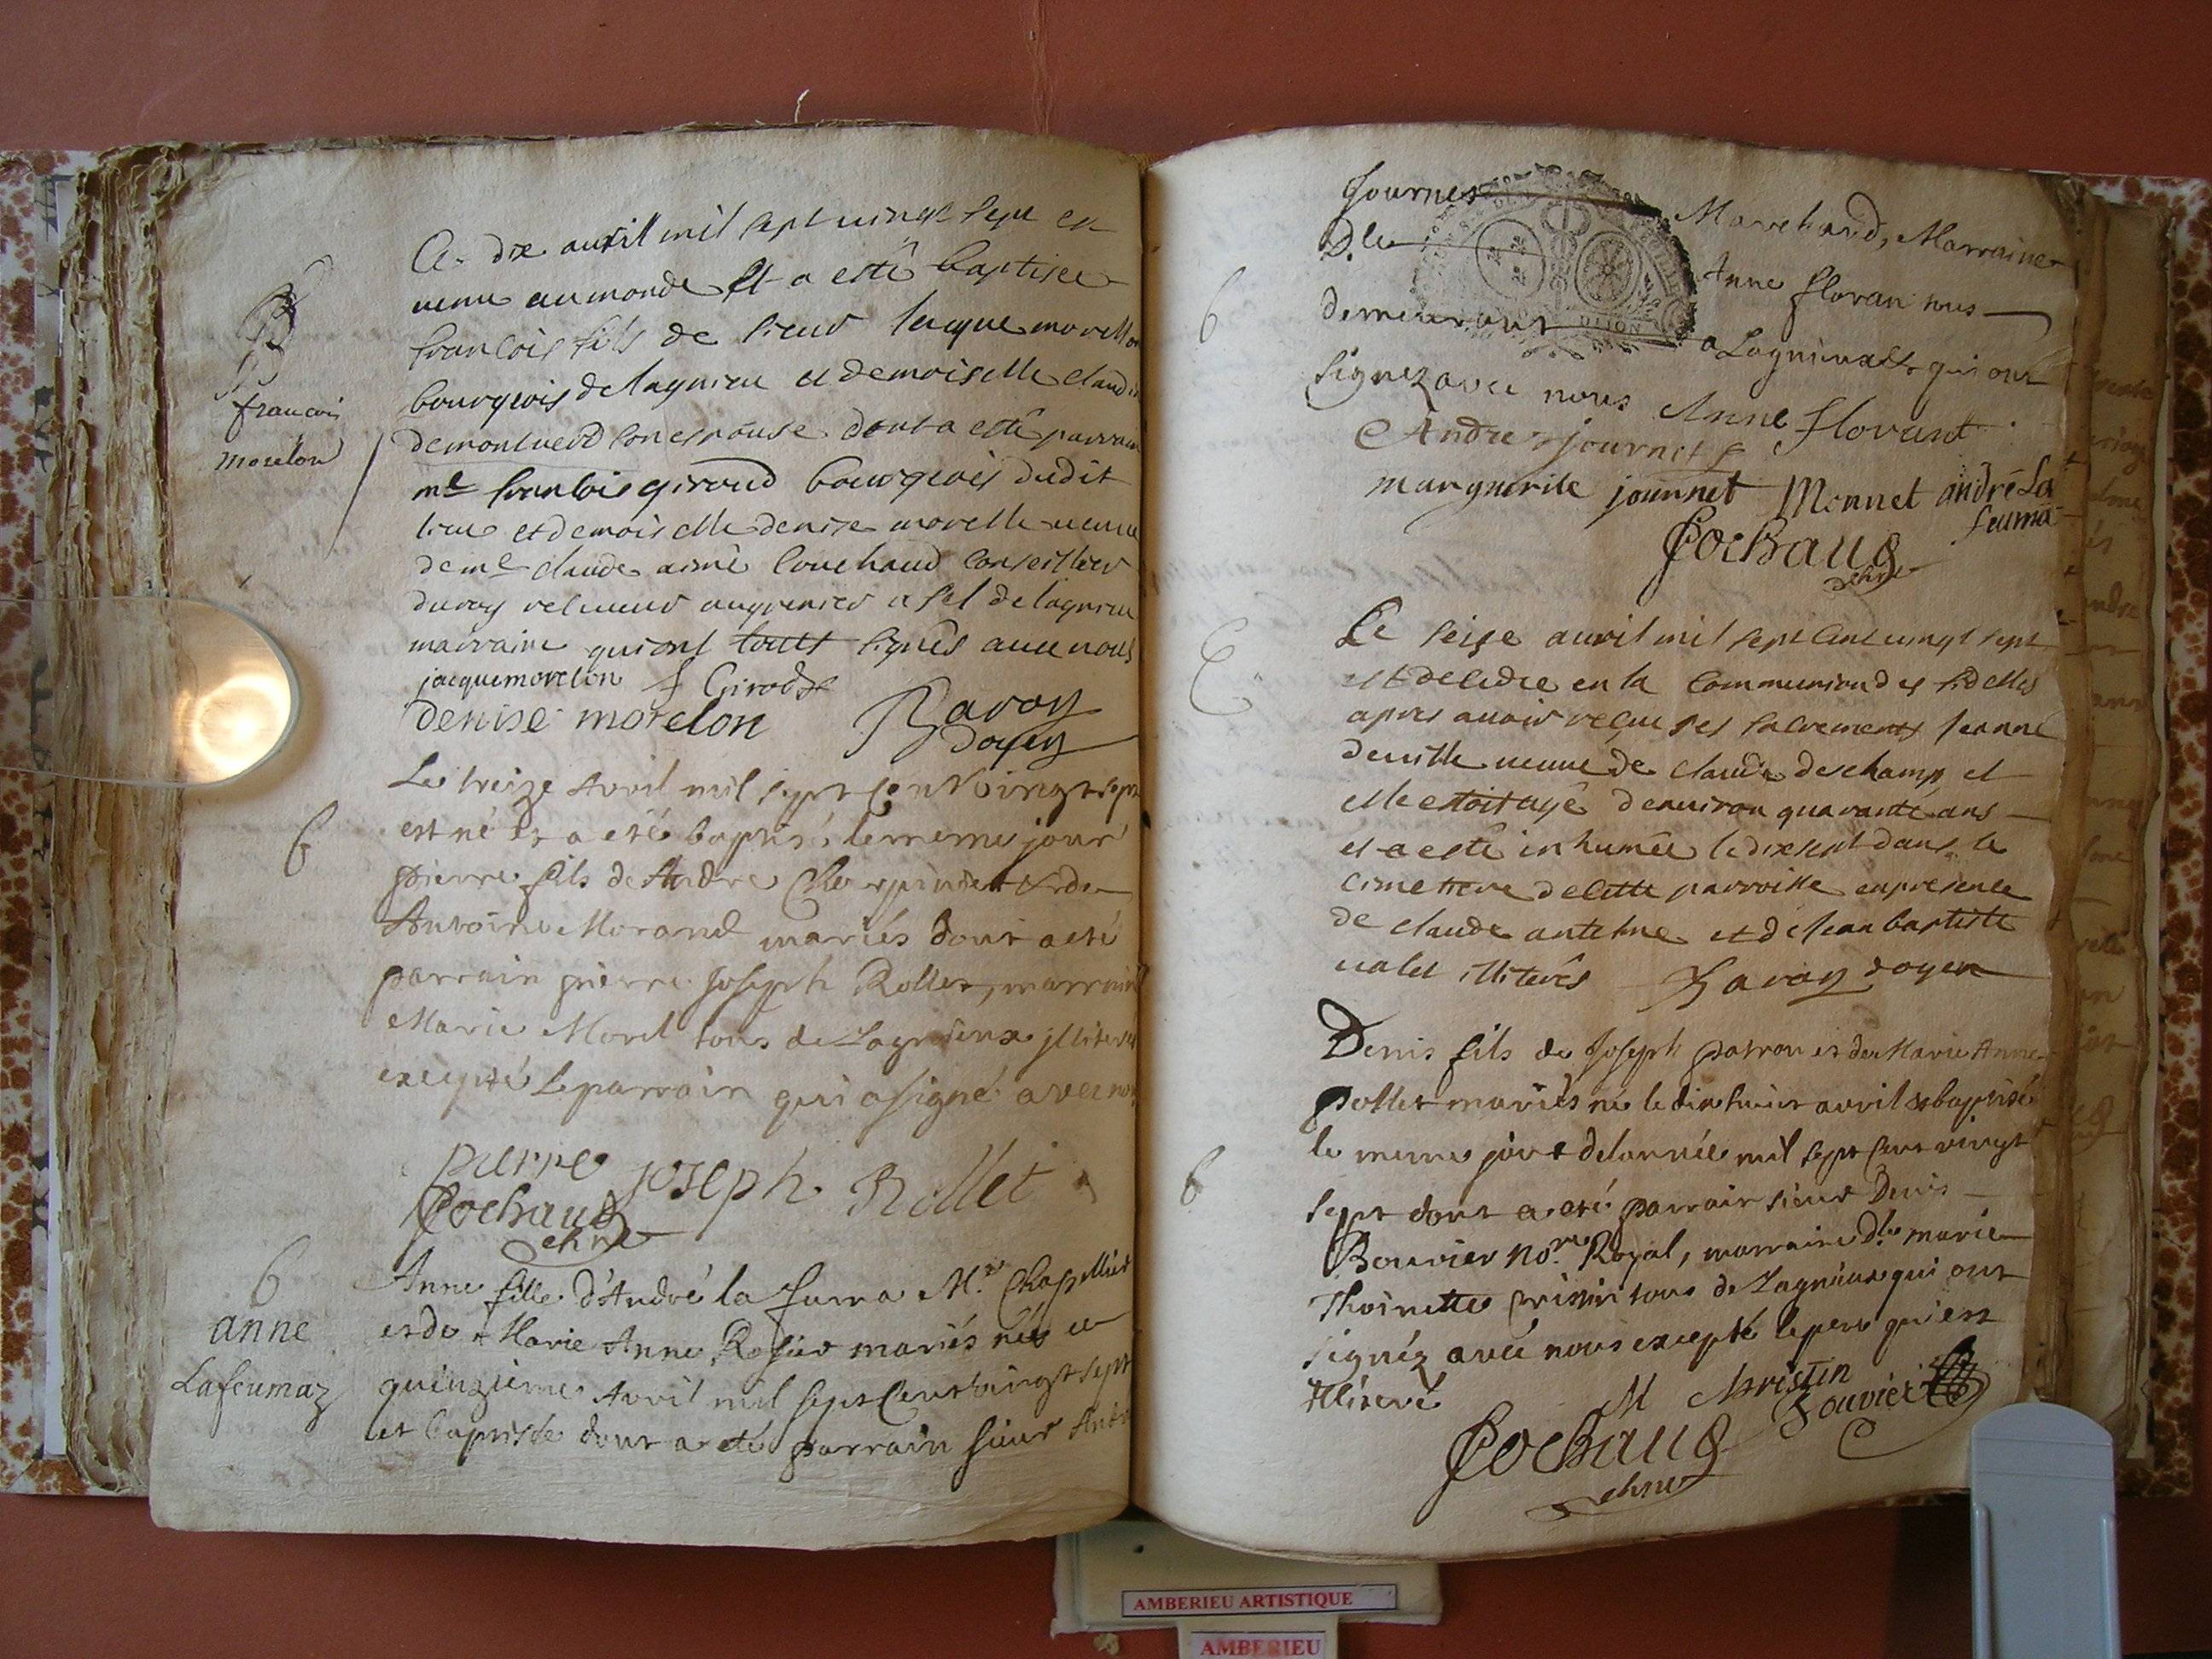 B
françois
morelon
Ce dix avril mil sept vingt sept est
venu au monde et a esté baptisee
françois fils de sieur Jacque morellon
bourgeois de lagnieu et demoiselle claudi
demontuerd son espouse dont a esté parrain
me françois giroud bourgeois dudit
lieu et demoiselle denise morelle veuve
de me claude aimé Couchaud conseillier
du roy receueur au grenier a sel de lagnieu
marraine qui ont touts signés auec nous
jacque morelon f Girod
denise morelon Ravoy
doyen
B
Le treize Avril mil sept cent Vingt sept
est né et a eté baptisé le meme jour
pierre fils de Andre Charpinet et de
Antoine Morand mariés dont a eté
parrain pierre Joseph Rollet, marraine
Marie Morel tous de Lagnieux jlliterés
excepté le parrain qui a signé avec nous
pierre joseph Rollet
Cochaud
chne
6
anne
Lafeumaz
Anne fille d'André la fuma Mre Chapellier
et de Marie Anne Rosier mariés née ce
quinzieme Avril mil sept Cent vingt sept
et baptisée dont a eté parrain sieur André
6
Journet Marchand, Marraine
Dlle Anne floran tous
demeurant a Lagnieux et qui ont
signez avec nous Anne florant
Andre journet
marguerite journet Monnet andré La
feuma
Cochaud
chne
Le seise auril mil sept cent uingt sept
est decedee en la Communion des fidelles
apres auoir reçue ses sacrements Jeanne
deville veuve de claude deschamp et
elle estoit agé d'enuiron quarante ans
et a esté inhumée le dixsept dans le
cimetiere de cette parroisse en presence
de claude antelme et de Jean baptiste
valet illiterés Ravoy doyen
6
Denis fils de Joseph patron et de Marie Anne
pollet mariés né le dix huict avril et baptisé
le meme jour de l'année mil sept Cent vingt
sept dont a eté parrain sieur Denis
Bouvier nore Royal, marraine Dlle marie
Thoinette cristin tous de Lagnieux qui ont
signéz avec nous excepté le pere qui est
Illiteré M Christin
Bouvier
Cochaud
chne
DIJON
AMBERIEU ARTISTIQUE
AMBERIEU